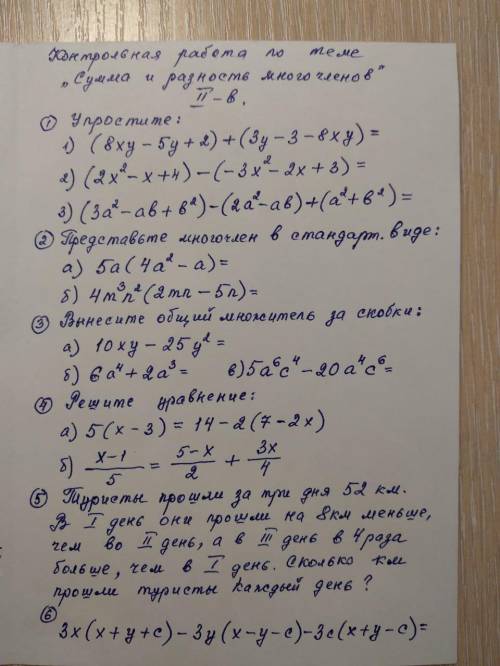 Контрольная работа по теме
„Сумма и разность многочленов"
II-в.
① Упростите:
1) (8xy - 5y + 2) + (3y - 3 - 8xy) =
2) (2x² - x + 4) - (-3x² - 2x + 3) =
3) (3a² - ab + b²) - (2a² - ab) + (a² + b²) =
② Представьте многочлен в стандарт. виде:
а) 5a(4a² - a) =
б) 4m³n²(2mn - 5n) =
③ Вынесите общий множитель за скобки:
а) 10xy - 25y² =
б) 6a⁴ + 2a³ = в) 5a⁶c⁴ - 20a⁴c⁶ =
④ Решите уравнение:
а) 5(x - 3) = 14 - 2(7 - 2x)
б) (x-1)/5 = (5-x)/2 + 3x/4
⑤ Туристы прошли за три дня 52 км.
В I день они прошли на 8км меньше,
чем во II день, а в III день в 4 раза
больше, чем в I день. Сколько км
прошли туристы каждый день?
⑥
3x(x + y + c) - 3y(x - y - c) - 3c(x + y - c) =